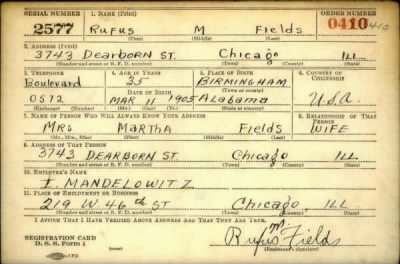 SERIAL NUMBER 1. NAME (Print) ORDER NUMBER
2577 Rufus M Fields 0410 410
(First) (Middle) (Last)
2. ADDRESS (Print)
3743 Dearborn ST. Chicago ILL
(Number and street or R. F. D. number) (Town) (County) (State)
3. TELEPHONE 4. AGE IN YEARS 5. PLACE OF BIRTH 6. COUNTRY OF CITIZENSHIP
Boulevard 35 BIRMINGHAM
DATE OF BIRTH (Town or county)
0572 MAR 11 1905 Alabama U.S.A.
(Exchange) (Number) (Mo.) (Day) (Yr.) (State or country)
7. NAME OF PERSON WHO WILL ALWAYS KNOW YOUR ADDRESS 8. RELATIONSHIP OF THAT PERSON
MRS MARTHA Fields WIFE
(Mr., Mrs., Miss) (First) (Middle) (Last)
9. ADDRESS OF THAT PERSON
3743 DEARBORN ST Chicago ILL
(Number and street or R. F. D. number) (Town) (County) (State)
10. EMPLOYER'S NAME
I. MANDELOWITZ
11. PLACE OF EMPLOYMENT OR BUSINESS
219 W. 46th ST Chicago, ILL
(Number and street or R. F. D. number) (Town) (County) (State)
I AFFIRM THAT I HAVE VERIFIED ABOVE ANSWERS AND THAT THEY ARE TRUE.
REGISTRATION CARD
D. S. S. Form 1 Rufus M. Fields
(Registrant's signature)